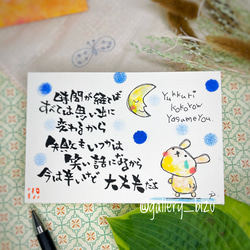 時間が経てば
すべては思い出に
変わるから
失敗もいつかは
笑い話になるから
今は辛いけど 大丈夫だよ
Yukkuri
Kokorow
YasumeYou.
@gallery_bizo